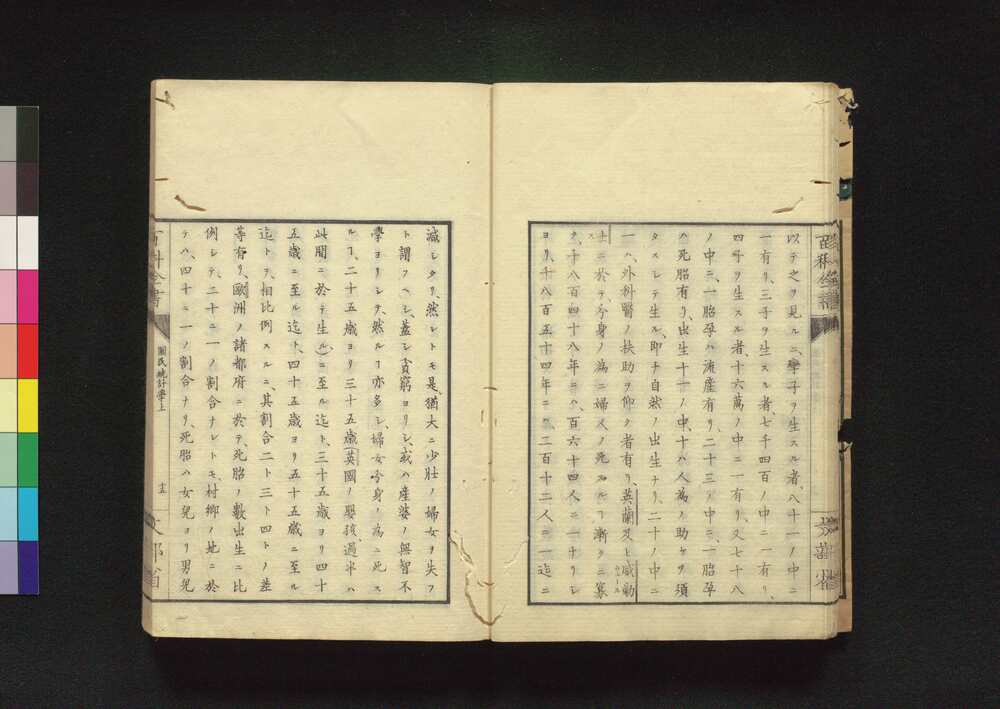 以テ之ヲ見ルニ、孿子ヲ生スル者、八十一ノ中ニ
一有リ、三子ヲ生スル者、七千四百ノ中ニ一有リ、
四子ヲ生スル者、十六萬ノ中ニ一有リ、又七十八
ノ中ニ、一胎孕ハ流産有リ、二十三ノ中ニ、一胎孕
ハ死胎有リ、出生十一ノ中、十ハ人為ノ助ケヲ須
タスシテ生ル、即チ自然ノ出生ナリ、二十ノ中ニ
一ハ、外科醫ノ扶助ヲ仰ク者有リ、英蘭及ヒ威勒
士ニ於テ、分身ノ為ニ婦人ノ死スルヿ漸クニ寡
ク、千八百四十八年ニハ、百六十四人ニ一ナリシ
ヨリ、千八百五十四年ニハ、二百十二人ニ一迄ニ
減シタリ、然レトモ是、猶大ニ少壮ノ婦女ヲ失フ
ト謂フヘシ、蓋シ貪窮ヨリシ、或ハ産婆ノ無智不
學ヨリシテ、然ルヿ亦多シ、婦女分身ノ為ニ死ス
ルヿ、二十五歳ヨリ三十五歳英國ノ嬰孩、過半ハ
此間ニ於テ生ルニ至ル迄ト、三十五歳ヨリ四十
五歳ニ至ル迄ト、四十五歳ヨリ五十五歳ニ至ル
迄トヲ、相比例スルニ、其割合二ト三ト四トノ差
等有リ、歐洲ノ諸都府ニ於テ、死胎ノ數出生ニ比
例シテ、二十二一ノ割合ナレトモ、村郷ノ地ニ於
テハ、四十ニ一ノ割合ナリ、死胎ハ女兒ヨリ男兒
百科全書
國民統計學上
十五
文部省